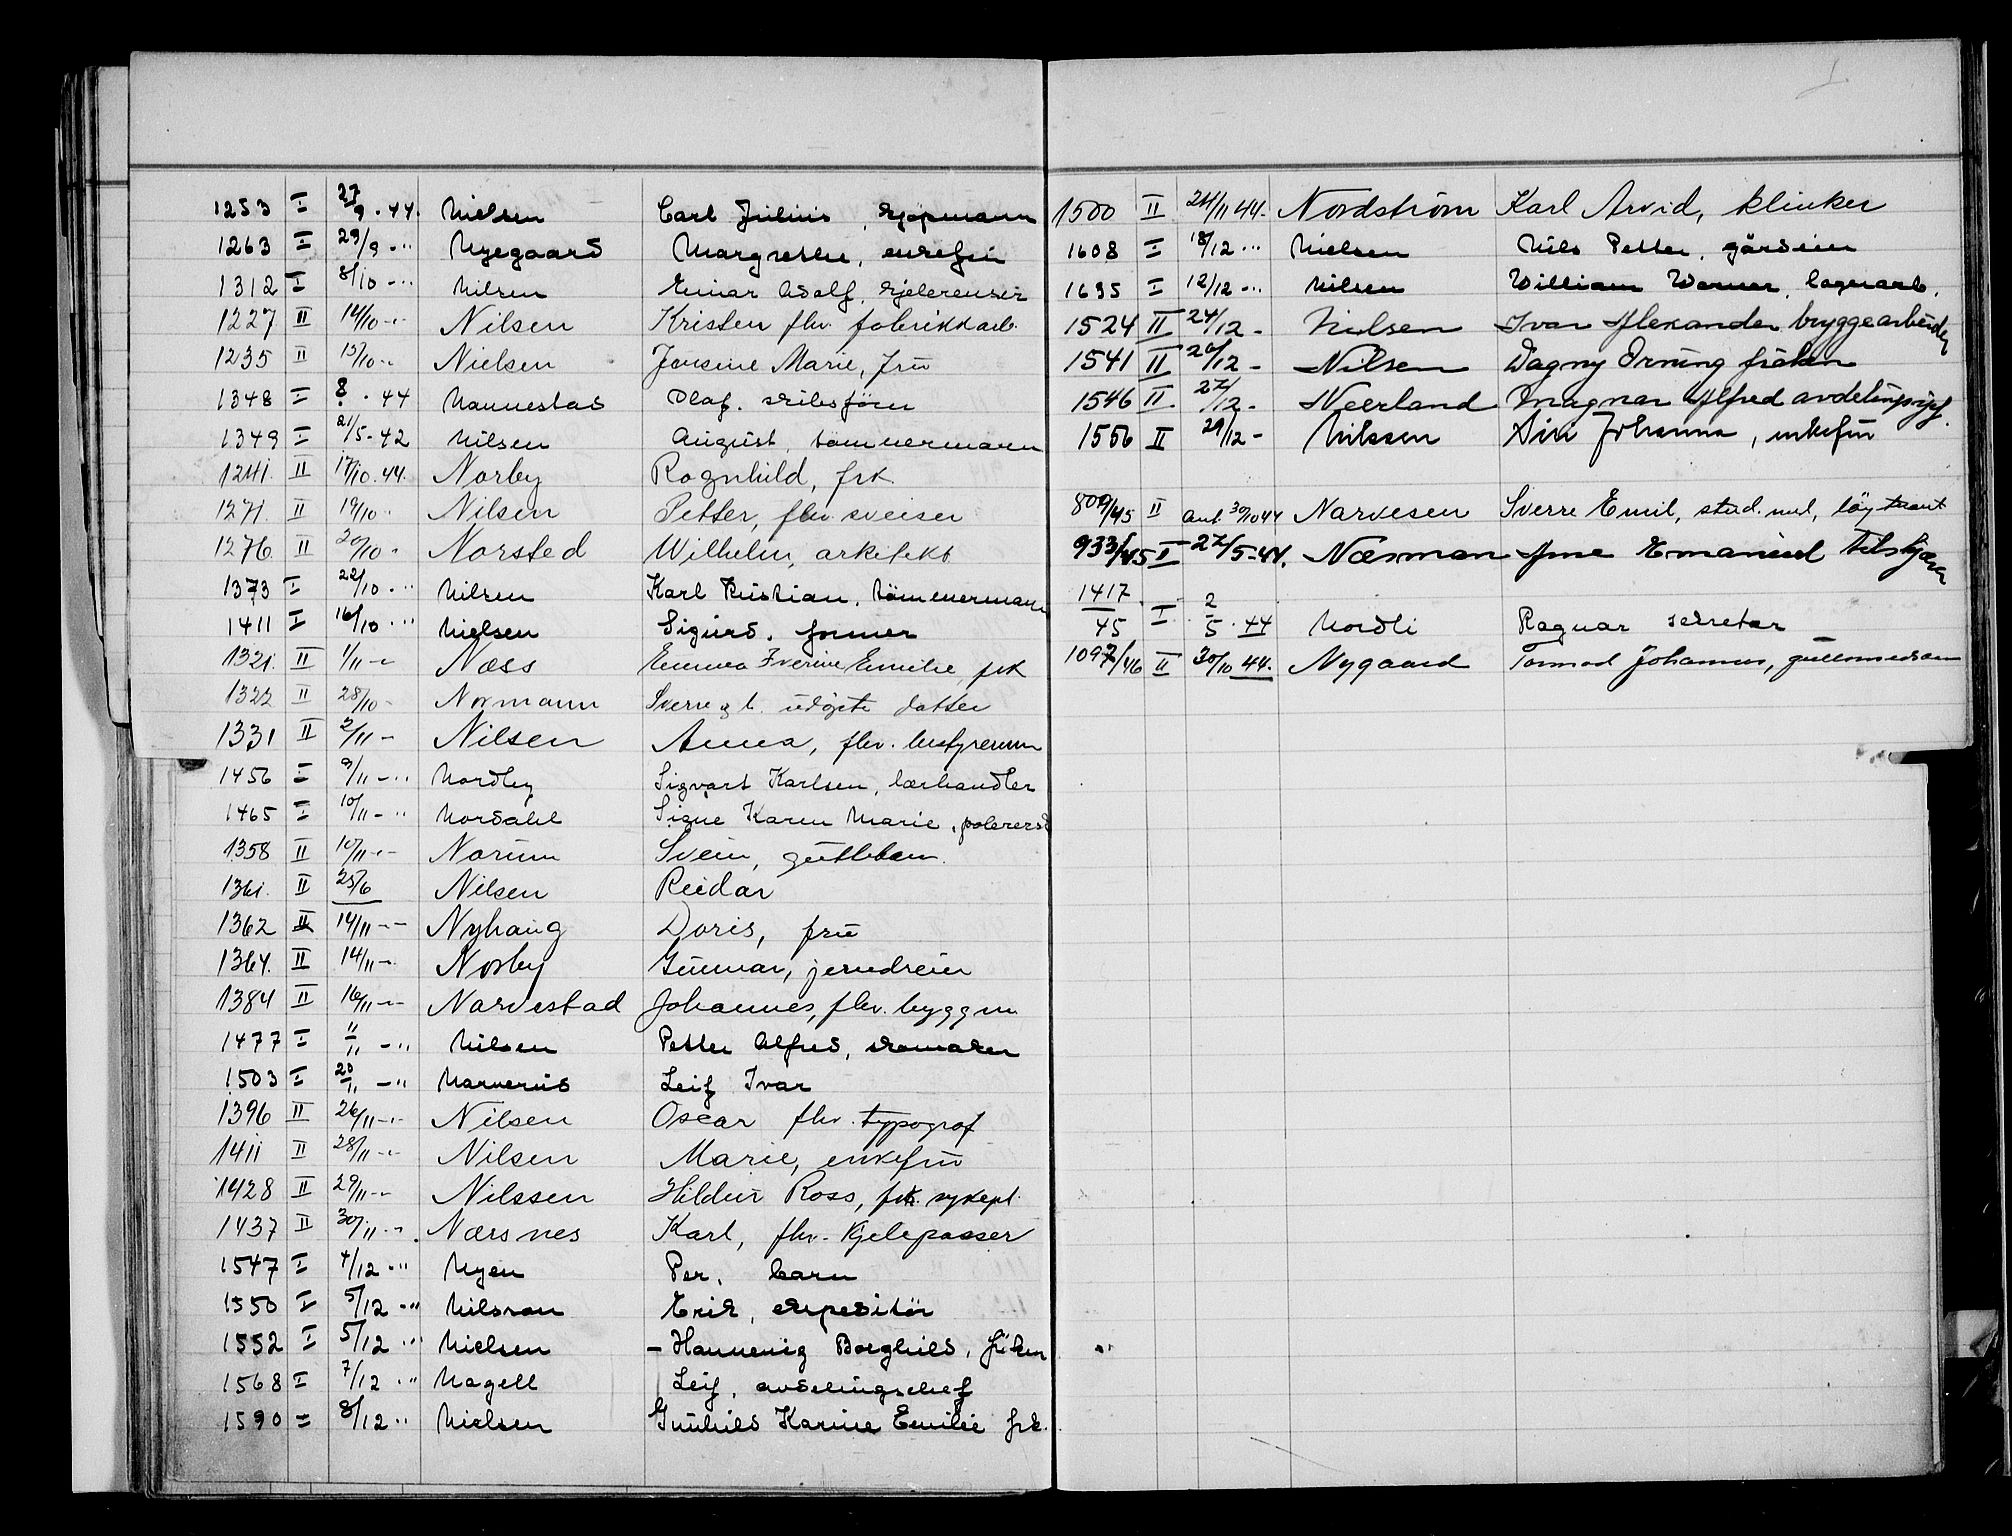 1253 I 27/9 · 44. Nielsen Carl Julius, kjøpmann
1263 I 29/9 - " Nyegaard Margrethe, enkefru
1312 I 8/10 - " Nilsen Einar Adolf, kjelerenser
1227 II 14/10 - " Nilsen Kristen fhv. fabrikkarb.
1235 II 15/10 - Nielsen Jensine Marie, fru
1348 I 8 · 44 Nannestad Olaf.
1349 I 21/5 - 42 Nilsen August, tømmermann
1241. II 17/10. 44. Norby Ragnhild, frk.
1271. II 19/10 - Nilsen Petter, fhv. sveiser
1276. II 20/10 - Norsted Wilhelm, arkitekt
1373 I 22/10 - " Nilsen Karl Kristian, tømmermann
1411 I 16/10 - " Nielsen Sigurd, former
1321. II 1/11 - " Næss Emma Iverine Emilie, frk
1322 II 28/10 - Normann Sverre g t. udøpte datter
1331 II 2/11 - Nilsen Anna, fhv. bestyrerinne
1456 I 9/11 - " Nordby Sigvart Karlsen, lærhandler
1465 I 10/11 - " Nordahl Signe Karen Marie,
1358 II 10/11 - " - Norum Svein, guttebarn.
1361. II 25/6 Nilsen Reidar
1362 II 14/11 - - Nyhaug Doris, fru
1364. II 14/11 - Norby Gunnar, jerndreier
1384 II 16/11 - - Narvestad Johannes, fhv. byggm.
1477 I 11/11 - " Nilsen Petter Alfred, skomaker
1503 I 20/11 - " Narverud Leif Ivar
1396 II 26/11 - " - Nilsen Oscar fhv. typograf
1411 II 28/11 - " Nilsen Marie, enkefru
1428 II 29/11 - " Nilssen Hildur Ross, frk. sykepl.
1437 II 30/11 - " Næsnes Karl, fhv. kjelepasser
1547 I 4/12 - " Nyen Per, barn
1550 I 5/12 - " Nilsson Erik, ekspeditør
1552 I 5/12 " Nielsen - Hannevig Borghild, frøken
1568 I 7/12 - " Nagell Leif, avdelingschef
1590 = 8/12 - " Nielsen Gunhild Karine Emilie frk.
1500 II 24/11 44. Nordström Karl Arvid, klinker
1608 I 18/12 - " Nielsen Nils Petter, gårdeier
1635 I 12/12 - " Nilsen William Werner, lagerarb.
1524 II 24/12 - Nielsen Ivar Alexander bryggearbeider
1541 II 26/12 - Nilsen Dagny Orning frøken
1546 II 27/12 - Neerland Ragnar Alfred avdelingssjef.
1556 II 29/12 - Nilssen Siri Johanna, enkefru
809/45 II ant. 30/10 44 Narvesen Sverre Emil, stud. med, løytnant
933/45 I 27/5-44. Næsman Arne Emanuel tilskjærer
1417/45 I 2/5 · 44 Nordli Ragnar sekretær
1097/46 II 30/10 44. Nygaard Tormod Johannes, gullsmedsvenn